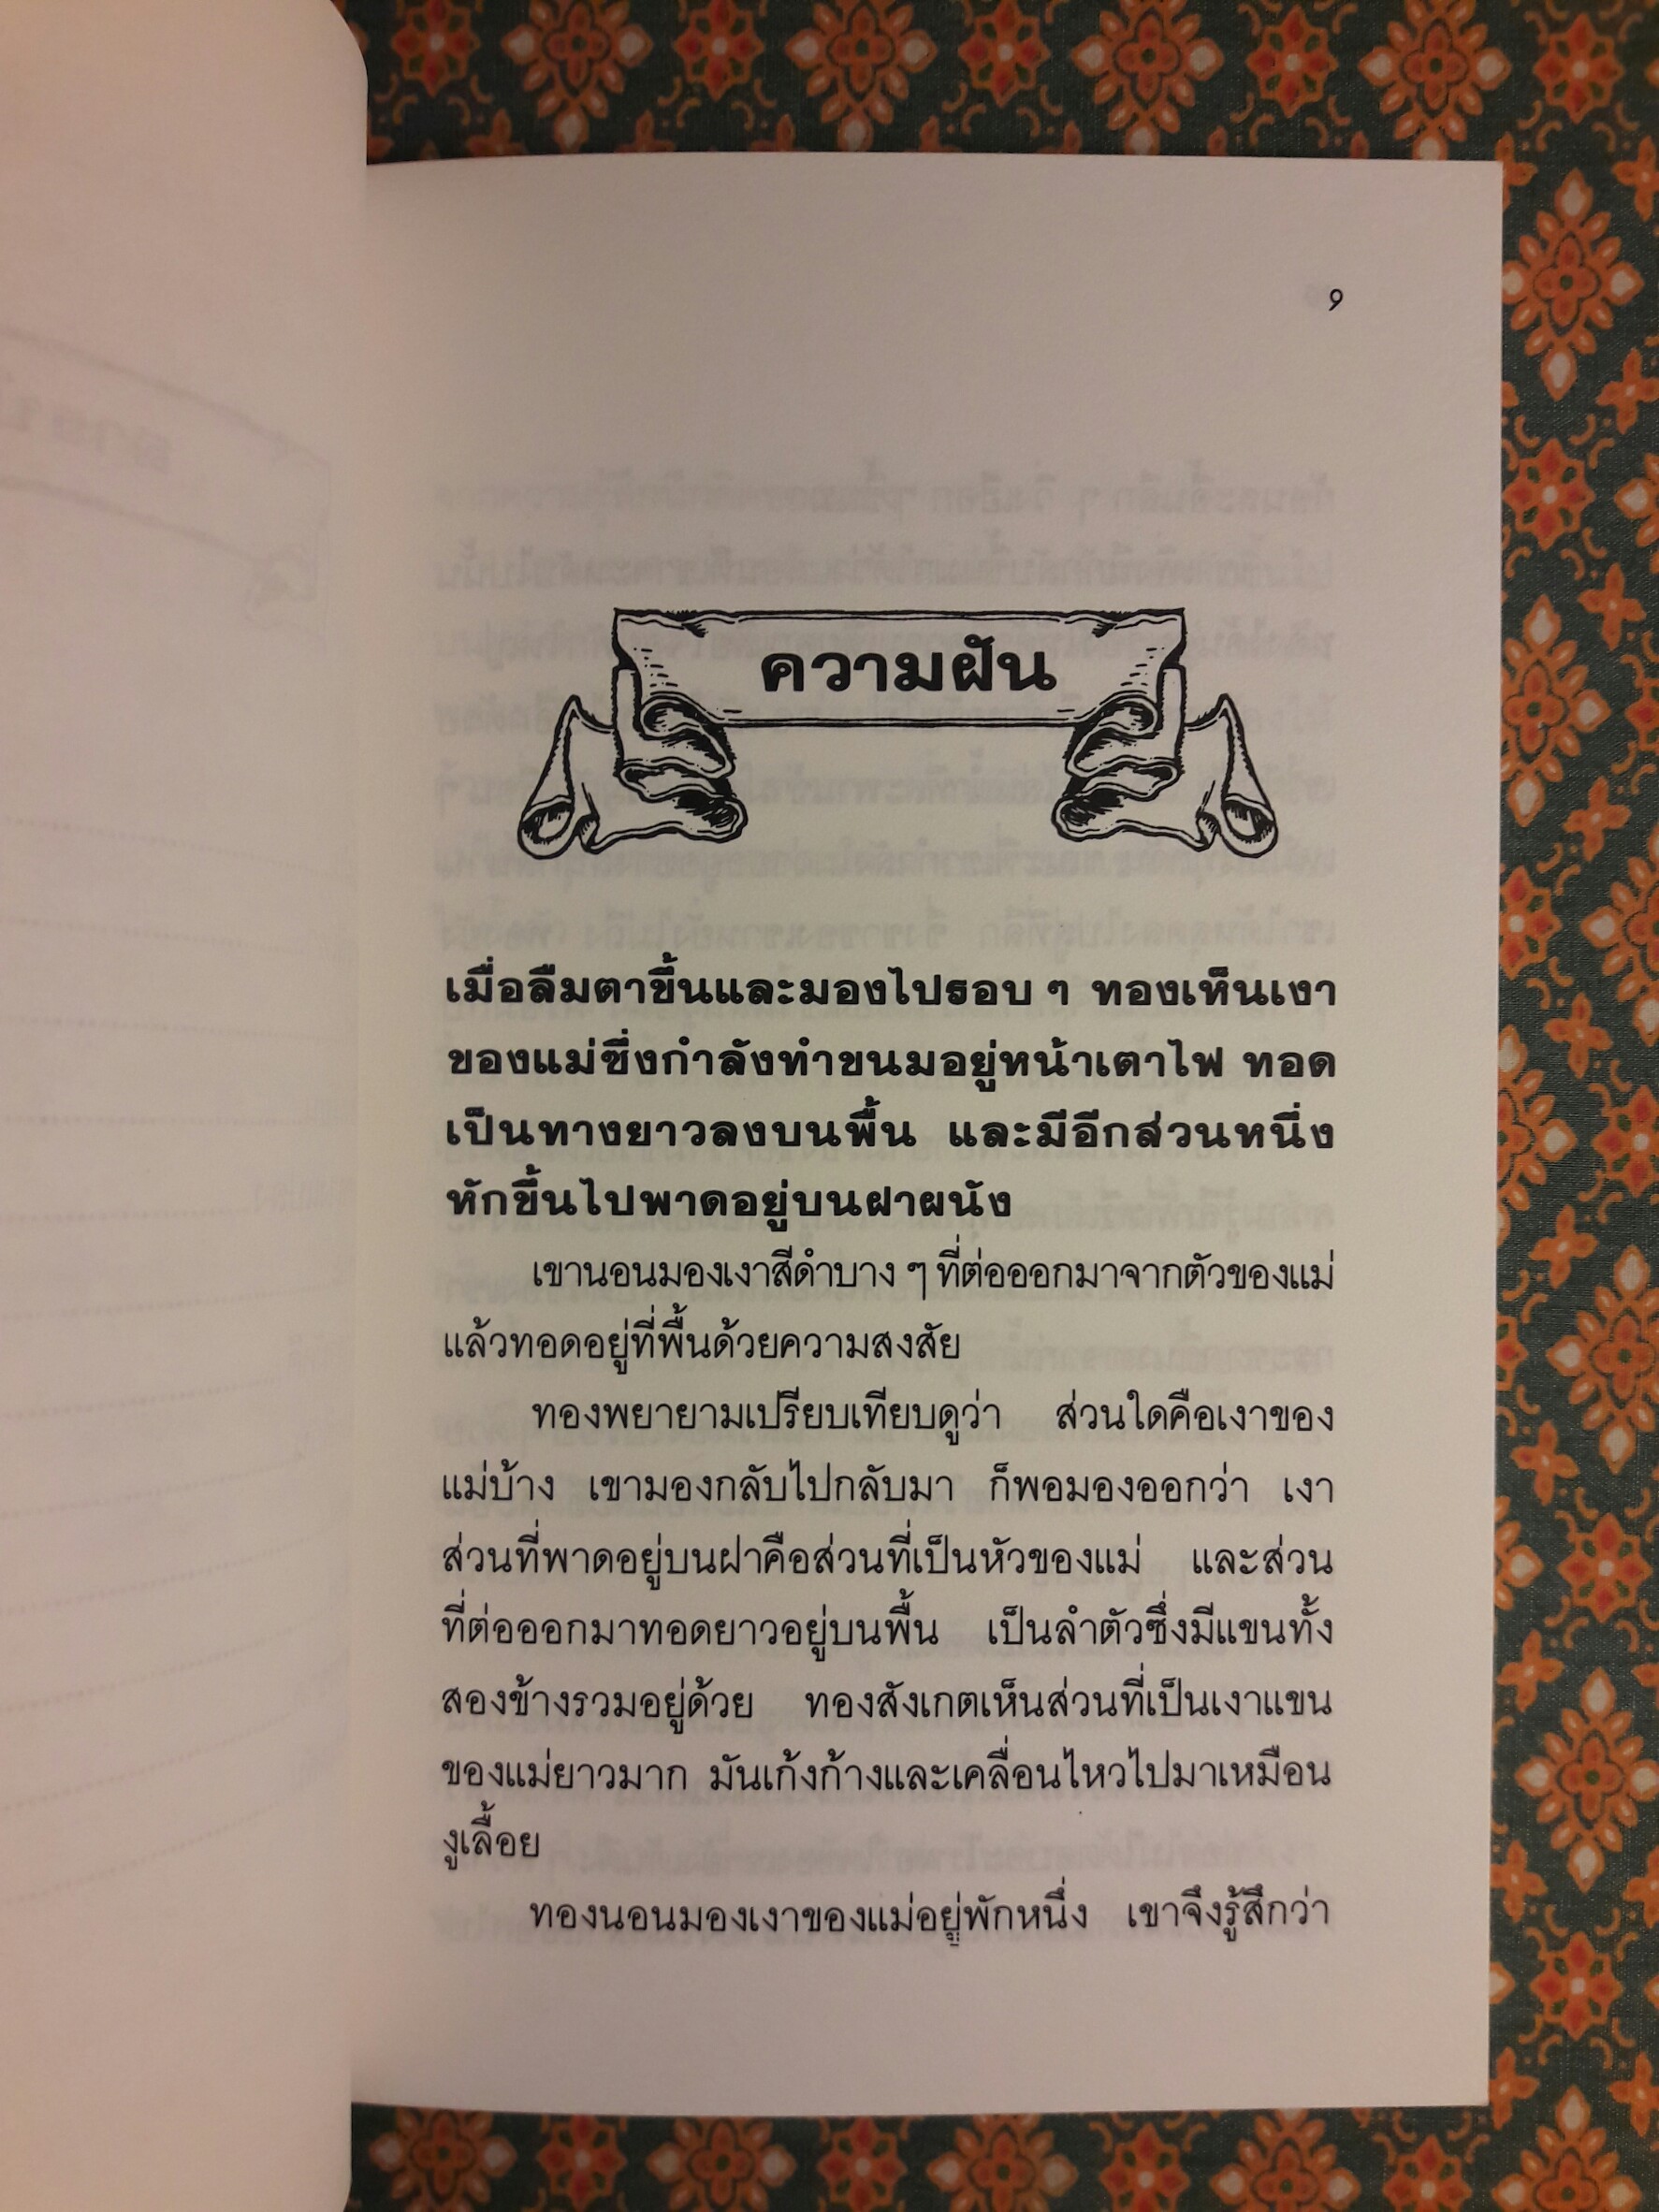 9
ความฝัน
เมื่อลืมตาขึ้นและมองไปรอบ ๆ ทองเห็นเงา
ของแม่ซึ่งกำลังทำขนมอยู่หน้าเตาไฟ ทอด
เป็นทางยาวลงบนพื้น และมีอีกส่วนหนึ่ง
หักขึ้นไปพาดอยู่บนฝาผนัง
เขานอนมองเงาสีดำบาง ๆ ที่ต่อออกมาจากตัวของแม่
แล้วทอดอยู่ที่พื้นด้วยความสงสัย
ทองพยายามเปรียบเทียบดูว่า ส่วนใดคือเงาของ
แม่บ้าง เขามองกลับไปกลับมา ก็พอมองออกว่า เงา
ส่วนที่พาดอยู่บนฝาคือส่วนที่เป็นหัวของแม่ และส่วน
ที่ต่อออกมาทอดยาวอยู่บนพื้น เป็นลำตัวซึ่งมีแขนทั้ง
สองข้างรวมอยู่ด้วย ทองสังเกตเห็นส่วนที่เป็นเงาแขน
ของแม่ยาวมาก มันเก้งก้างและเคลื่อนไหวไปมาเหมือน
งูเลื้อย
ทองนอนมองเงาของแม่อยู่พักหนึ่ง เขาจึงรู้สึกว่า